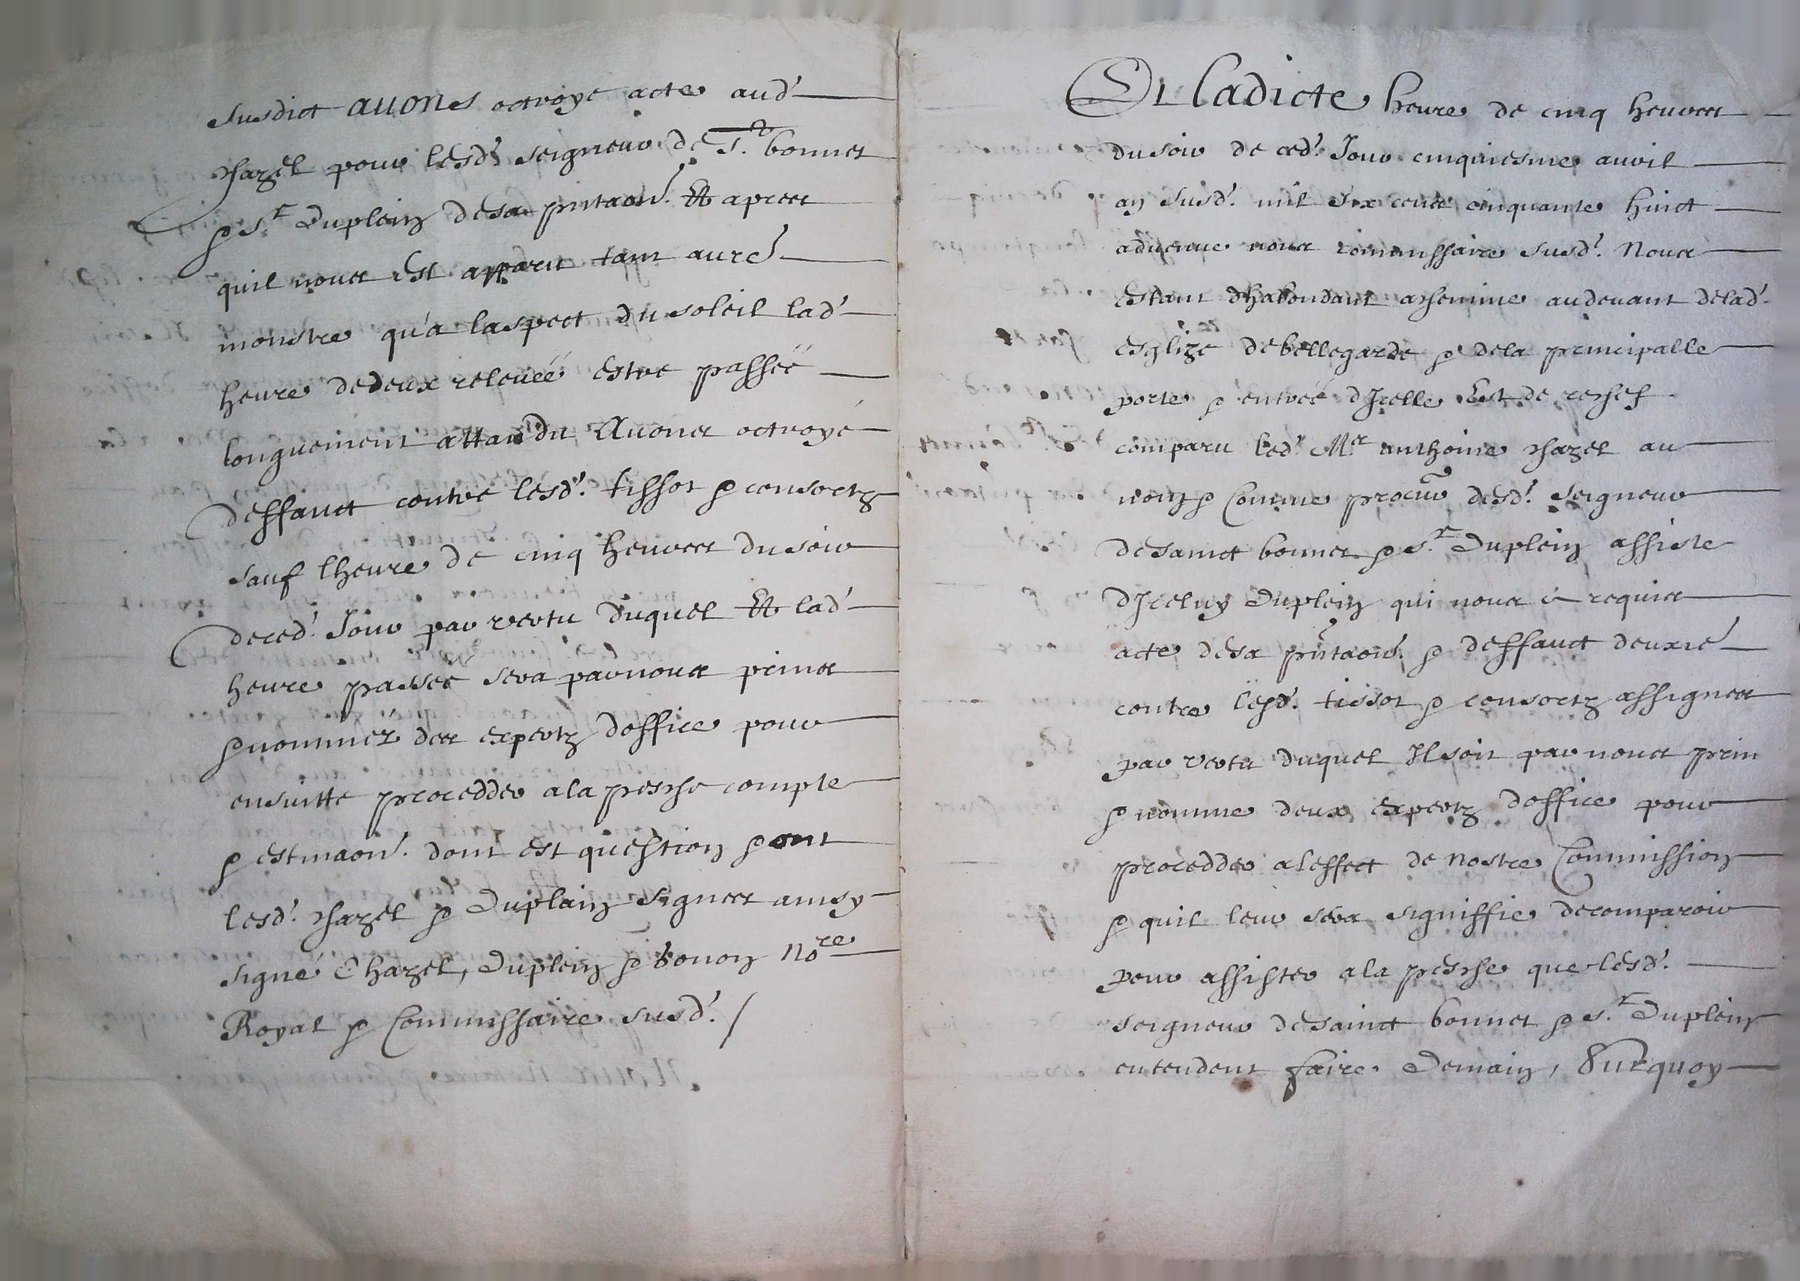 susdict avons octroyé acte aud.
Chazel pour lesd. seigneur de St. bonnet
& sr. Duplein de sa pñtaon. Et apres
quil nous est apparu tant au re
monstre qua laspect du soleil lad.
heure de deux relevéé estre passéé
longuement attandu Avons octroyé
deffaut contre lesd. tissot & consortz
sauf lheure de cinq heures du soir
de ced. Jour par vertu duquel Et lad.
heure passéé sera par nous prins
& nommez des expertz doffice pour
ensuitte procedder a la pesche compte
& estmaon. dont est question & ont
lesd. chazel & Duplain signes ainsy
signé Chazel, Duplein & bonon nore
Royal & Commissaire susd. /
Et ladicte heure de cinq heures
du soir de ced. Jour cinquiesme avril
an susd. mil six cens cinquante huict
advenue nous commissaire susd. Nous
estant dhabondant achemine au devant de lad.
esglize de bellegarde & de la principalle
porte & entréé dIcelle Est de rechef
comparu led. Mre anthoine chazel au
nom & Comme procur desd. seigneur
de sainct bonnet & sr. Duplein assiste
dIceluy Duplein qui nous a requis
acte de sa pñtaon. & deffaut deuxie
contre lesd. tissot & consortz assignes
par vertu duquel Il soit par nous prin
& nomme deux expertz doffice pour
procedder a leffect de nostre Commission
& quil leur sera signiffie de comparoir
pour assister a la pesche que lesd.
seigneur de sainct bonnet & sr. Duplein
entendent faire Demain, Surquoy